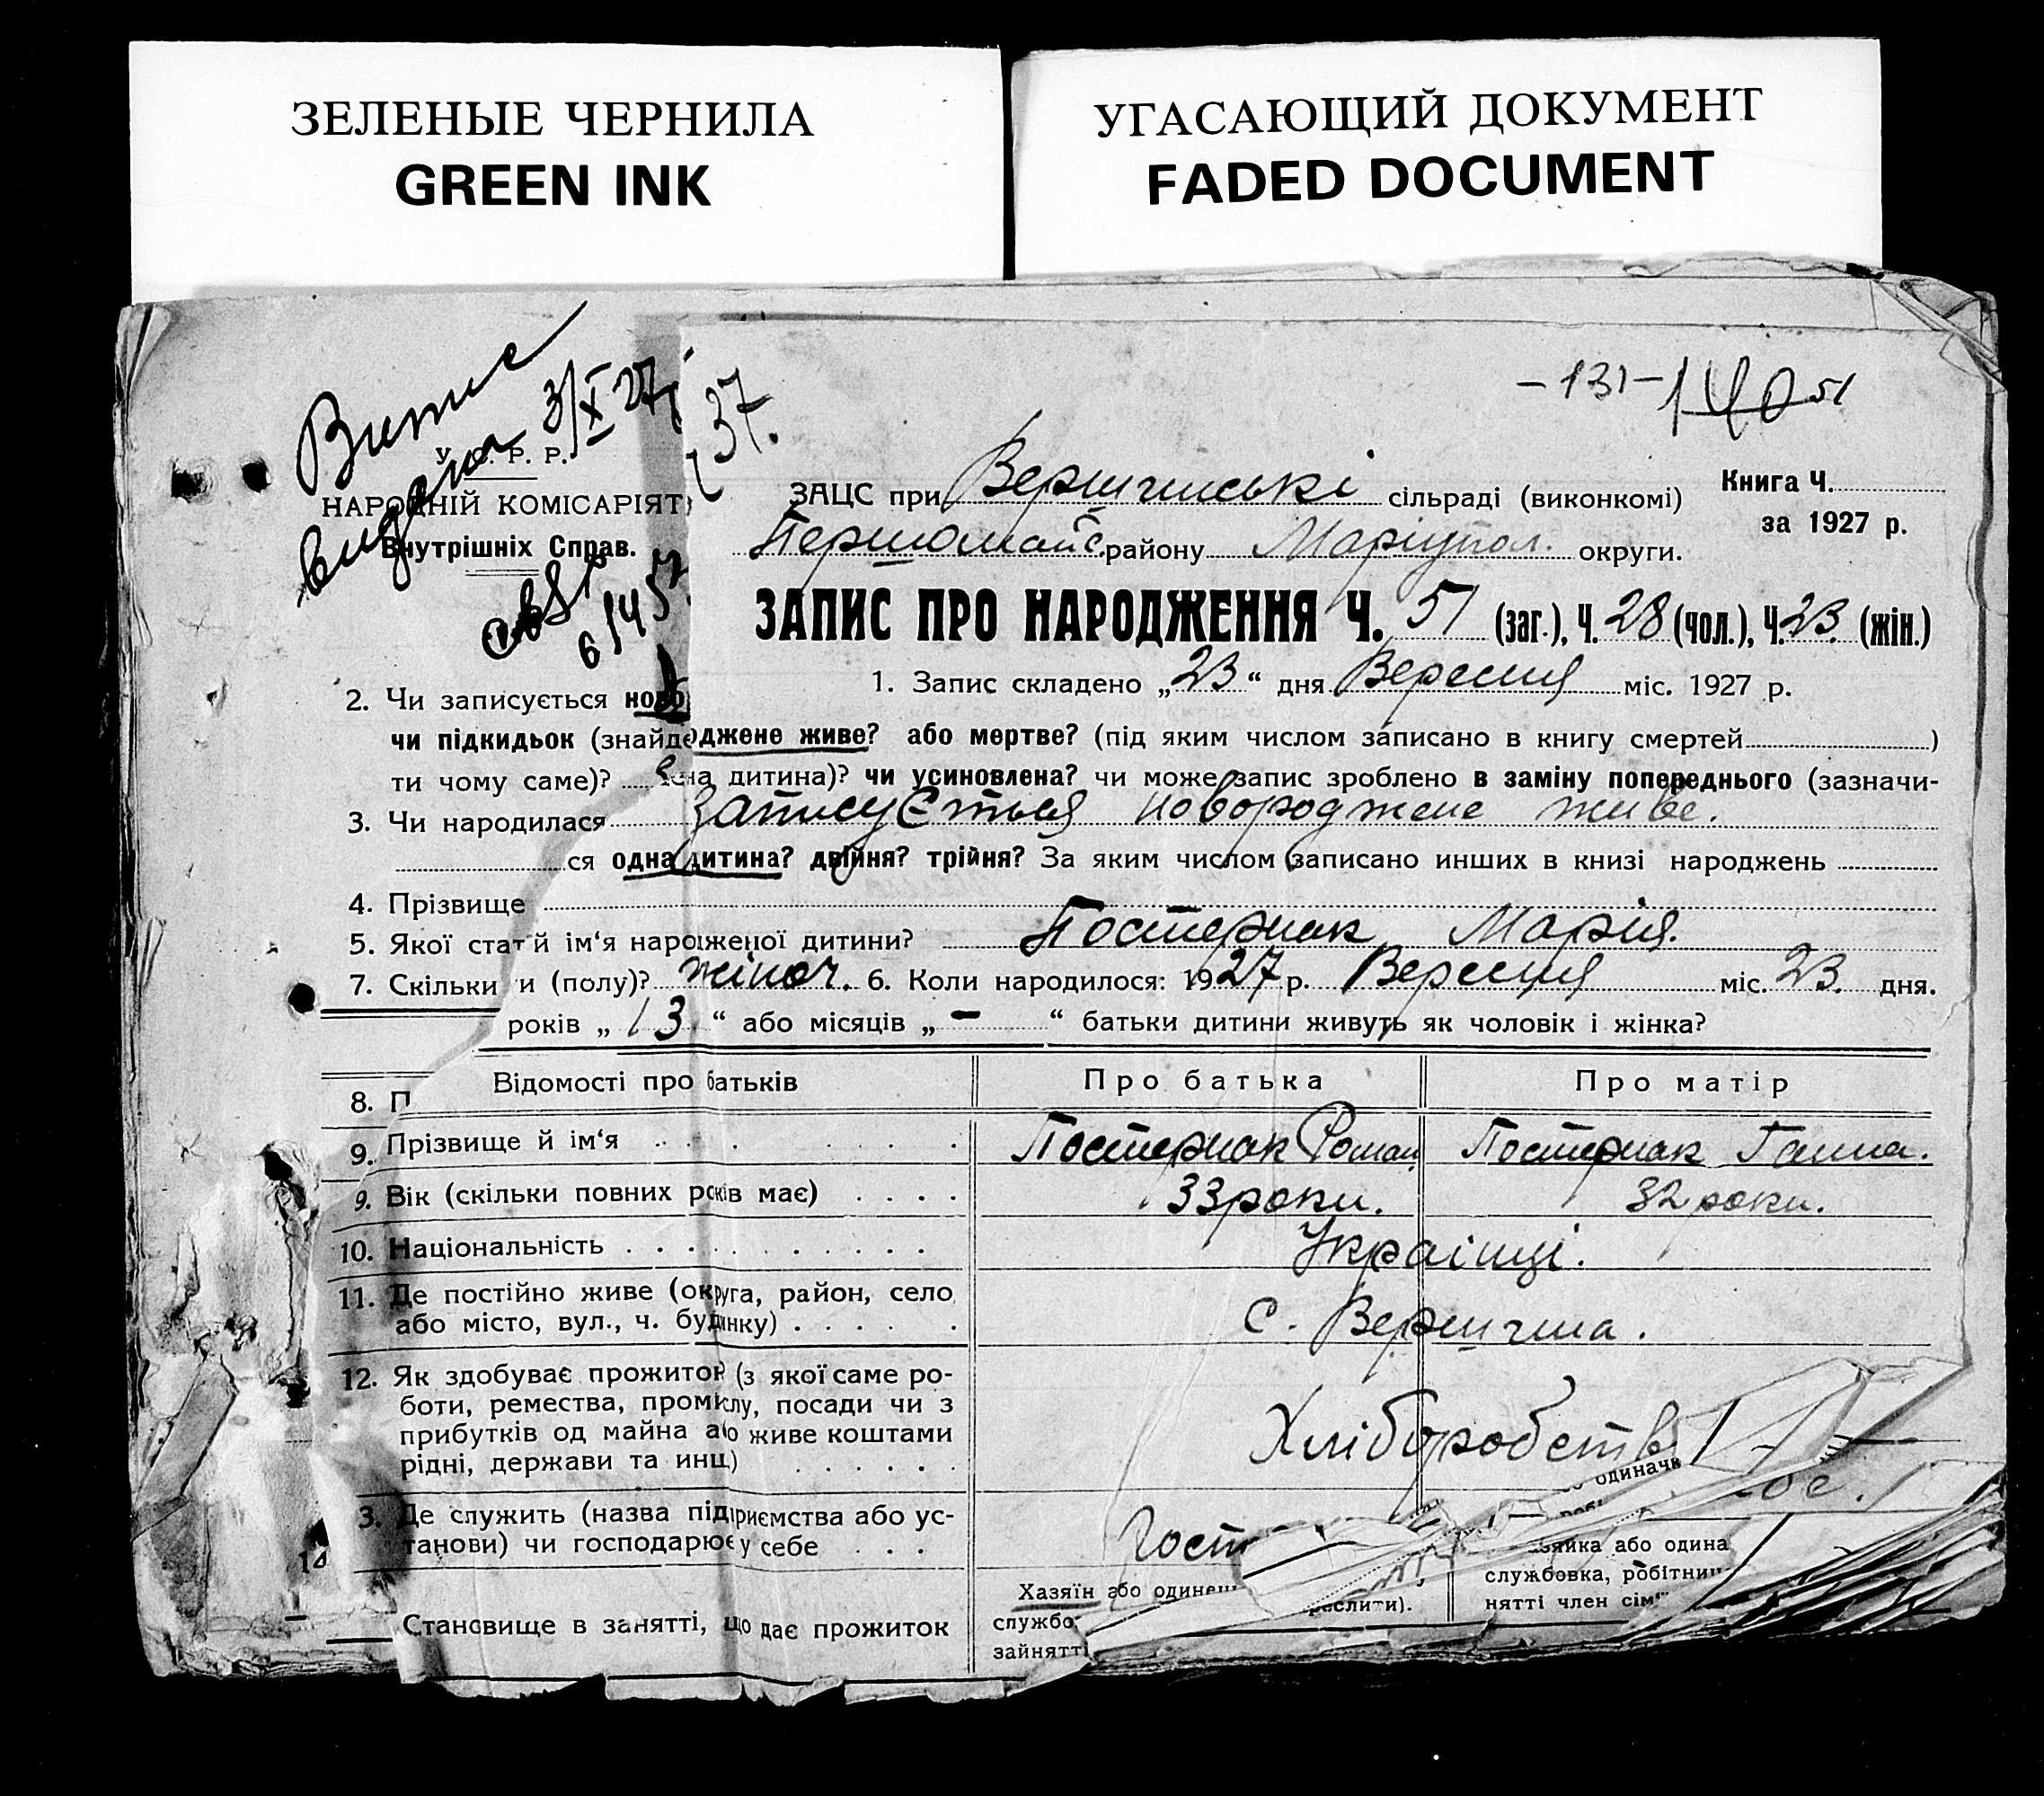 ЗЕЛЕНЫЕ ЧЕРНИЛА
GREEN INK
УГАСАЮЩИЙ ДОКУМЕНТ
FADED DOCUMENT
Витяг
видана 3/X 27
37.
-131- 140 51
У. С. Р. Р.
НАРОДНІЙ КОМІСАРІЯТ
Внутрішніх Справ.
6/4 57
ЗАЦС при Вершинській сільраді (виконкомі)
Книга Ч.
за 1927 р.
Першомайс. району Маріупол. округи.
ЗАПИС ПРО НАРОДЖЕННЯ Ч. 51 (заг.), Ч. 28 (чол.), Ч. 23. (жін.)
1. Запис складено „23“ дня Вересня міс. 1927 р.
2. Чи записується ново
джене живе? або мертве? (під яким числом записано в книгу смертей )
чи підкидьок (знайде
на дитина)? чи усиновлена? чи може запис зроблено в заміну попереднього (зазначи-
ти чому саме)?
записується новороджене живе.
3. Чи народилася
ся одна дитина? двійня? трійня? За яким числом записано инших в книзі народжень
4. Прізвище
Постернак Марія.
5. Якої стат й ім‘я народженої дитини?
и (полу)? жіноч. 6. Коли народилося: 1927 р. Вересня міс. 23. дня.
7. Скільки
років „13“ або місяців „-“ батьки дитини живуть як чоловік і жінка?
Відомості про батьків
Про батька
Про матір
8. П
9. Прізвище й ім‘я
Постернак Роман
Постернак Ганна.
9. Вік (скільки повних років має)
33 роки.
32 роки.
10. Національність
Українці.
11. Де постійно живе (округа, район, село
або місто, вул., ч. будинку)
с. Вершина.
12. Як здобуває прожиток (з якої саме ро-
боти, ремества, промислу, посади чи з
прибутків од майна або живе коштами
рідні, держави та инш)
Хліборобств
одиначк
3. Де служить (назва підприємства або ус-
танови) чи господарює у себе
Госп
14
Становище в занятті, що дає прожиток
Хазяїн або одинец
службо
зайнятті
реслити).
зяйка або одина
службовка, робітниц
нятті член сім